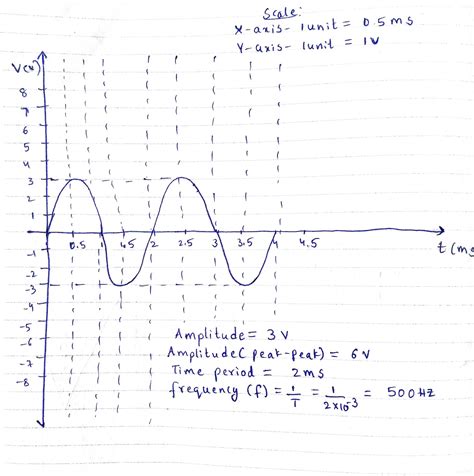 Scale:
X-axis- 1unit = 0.5 ms
Y-axis- 1unit = 1V
V(v)
8
7
6
5
4
3
2
1
0.5 1 1.5 2 2.5 3 3.5 4 4.5
t(ms
-1
-2
-3
-4
-5
-6
-7
-8
Amplitude = 3 V
Amplitude( peak-peak) = 6V
Time period = 2ms
frequency (f) = 1/T = 1/2×10-3 = 500HZ